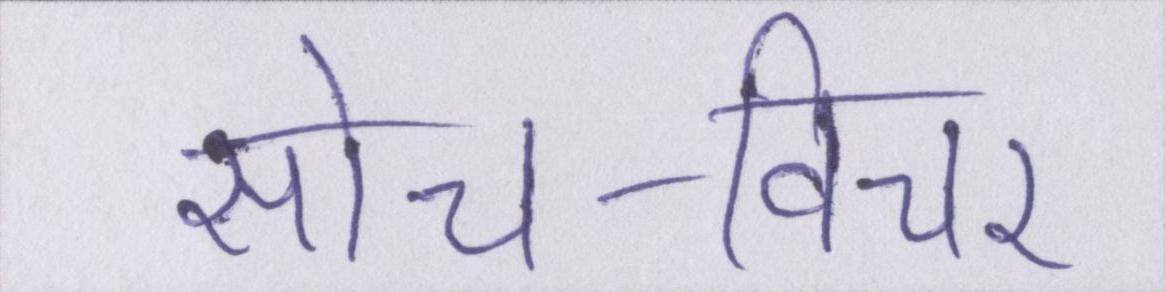 सोच-विचर